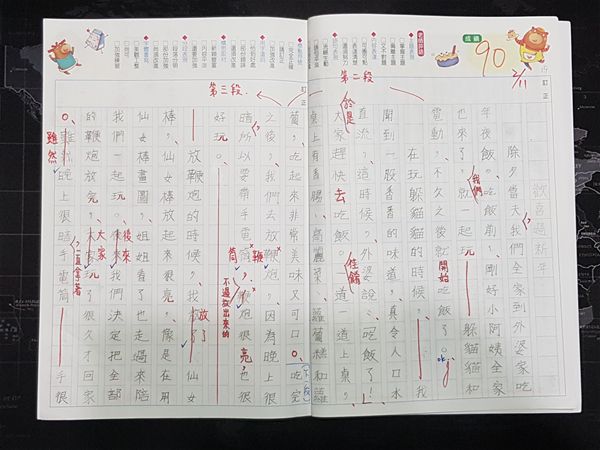 成績
90
2/11
訂正
歡喜過新年
除夕當天我們全家到外婆家吃
年夜飯。吃飯前,剛好小阿姨全家
也來了,就一起玩 躲貓貓和
我們
電動,不久之後就吃飯了。
開始
ok
在玩躲貓貓的時候, 我
聞到一股香香的味道,真令人口水
直流。這時候,外婆說:吃飯了!
第二段
於是
大家趕快去吃飯 一道一道上桌,
佳餚
桌上有香腸、高麗菜、蘿蔔糕和蘿
蔔,吃起來非常美味又可口。吃完
訂正
第三段
之後,我們去放鞭炮,因為晚上很
暗所以要帶手電筒,鞭炮很亮,也很
筒
鞭
好玩。
不過放出來的
放鞭炮的時候,我放了 仙女
放了
棒,仙女棒放起來很亮,像是在用
仙女棒畫圖,姐姐看了也走過來陪
我們一起玩。 我們決定把全部
後來
的鞭炮放完, 玩了很久才回家
大家
。 晚上很暗手電筒 手很
一直拿著
雖然